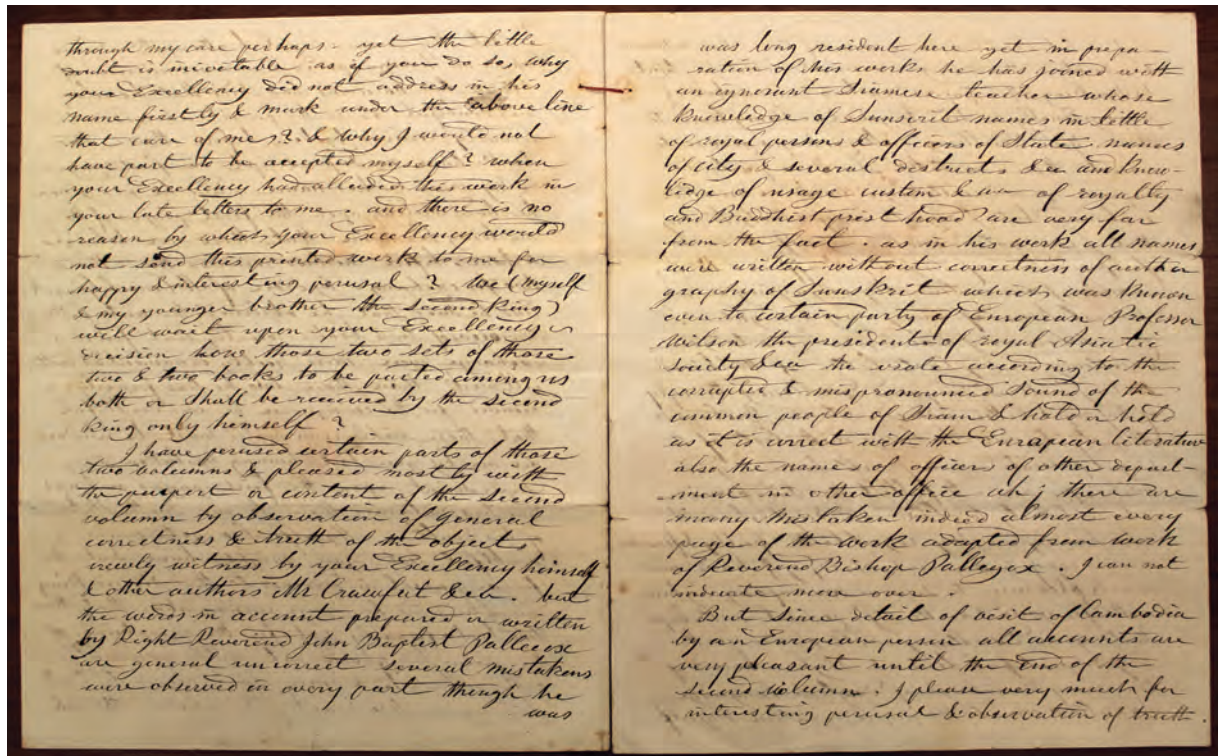 through my care perhaps. yet the little
doubt is inevitable as if you do so, why
your Excellency did not address in his
name firstly & mark under the above line
that care of me? & why I would not
have part to be accepted myself? when
your Excellency had alluded this work in
your late letters to me. and there is no
reason by what your Excellency would
not send this printed work to me for
happy & interesting perusal? We (myself
& my younger brother the second king)
will wait upon your Excellency's
decision how those two sets of those
two & two books to be parted among us
both or shall be received by the second
king only himself?
I have perused certain parts of those
two volumns & pleased most by with
the purport or content of the second
volumn by observation of general
correctness & truth of the object
newly witness by your Excellency himself
& other authors Mr Crawfurt &ca. but
the words in account prepared or written
by Right Reverend John Baptist Pallegox
are general uncorrect several mistakens
were observed in every part though he
was
was long resident here yet in prepa-
ration of his works he has joined with
an ignorant Siamese teacher whose
knowledge of Sunscrit names in little
of royal persons & officers of State names
of city & several districts &ca and know-
ledge of usage custom &ca of royalty
and Buddhist priesthood are very far
from the fact. as in his work all names
were written without correctness of author
graphy of Sunskrit which was known
even to certain party of European Professor
Wilson the presidente of royal Asiatic
Society &ca he wrote according to the
corrupted & mispronounced sound of the
common people of Siam & hold a hold
as it is correct with the European literature
also the names of officers of other depart-
ment in other office ah; there are
many mistaken indeed almost every
page of the work adapted from work
of Reverend Bishop Pallegox. I can not
indicate more over.
But since detail of visit of Cambodia
by an European person all accounts are
very pleasant until the End of the
second volumn. I please very much for
interesting perusal & observation of truth.